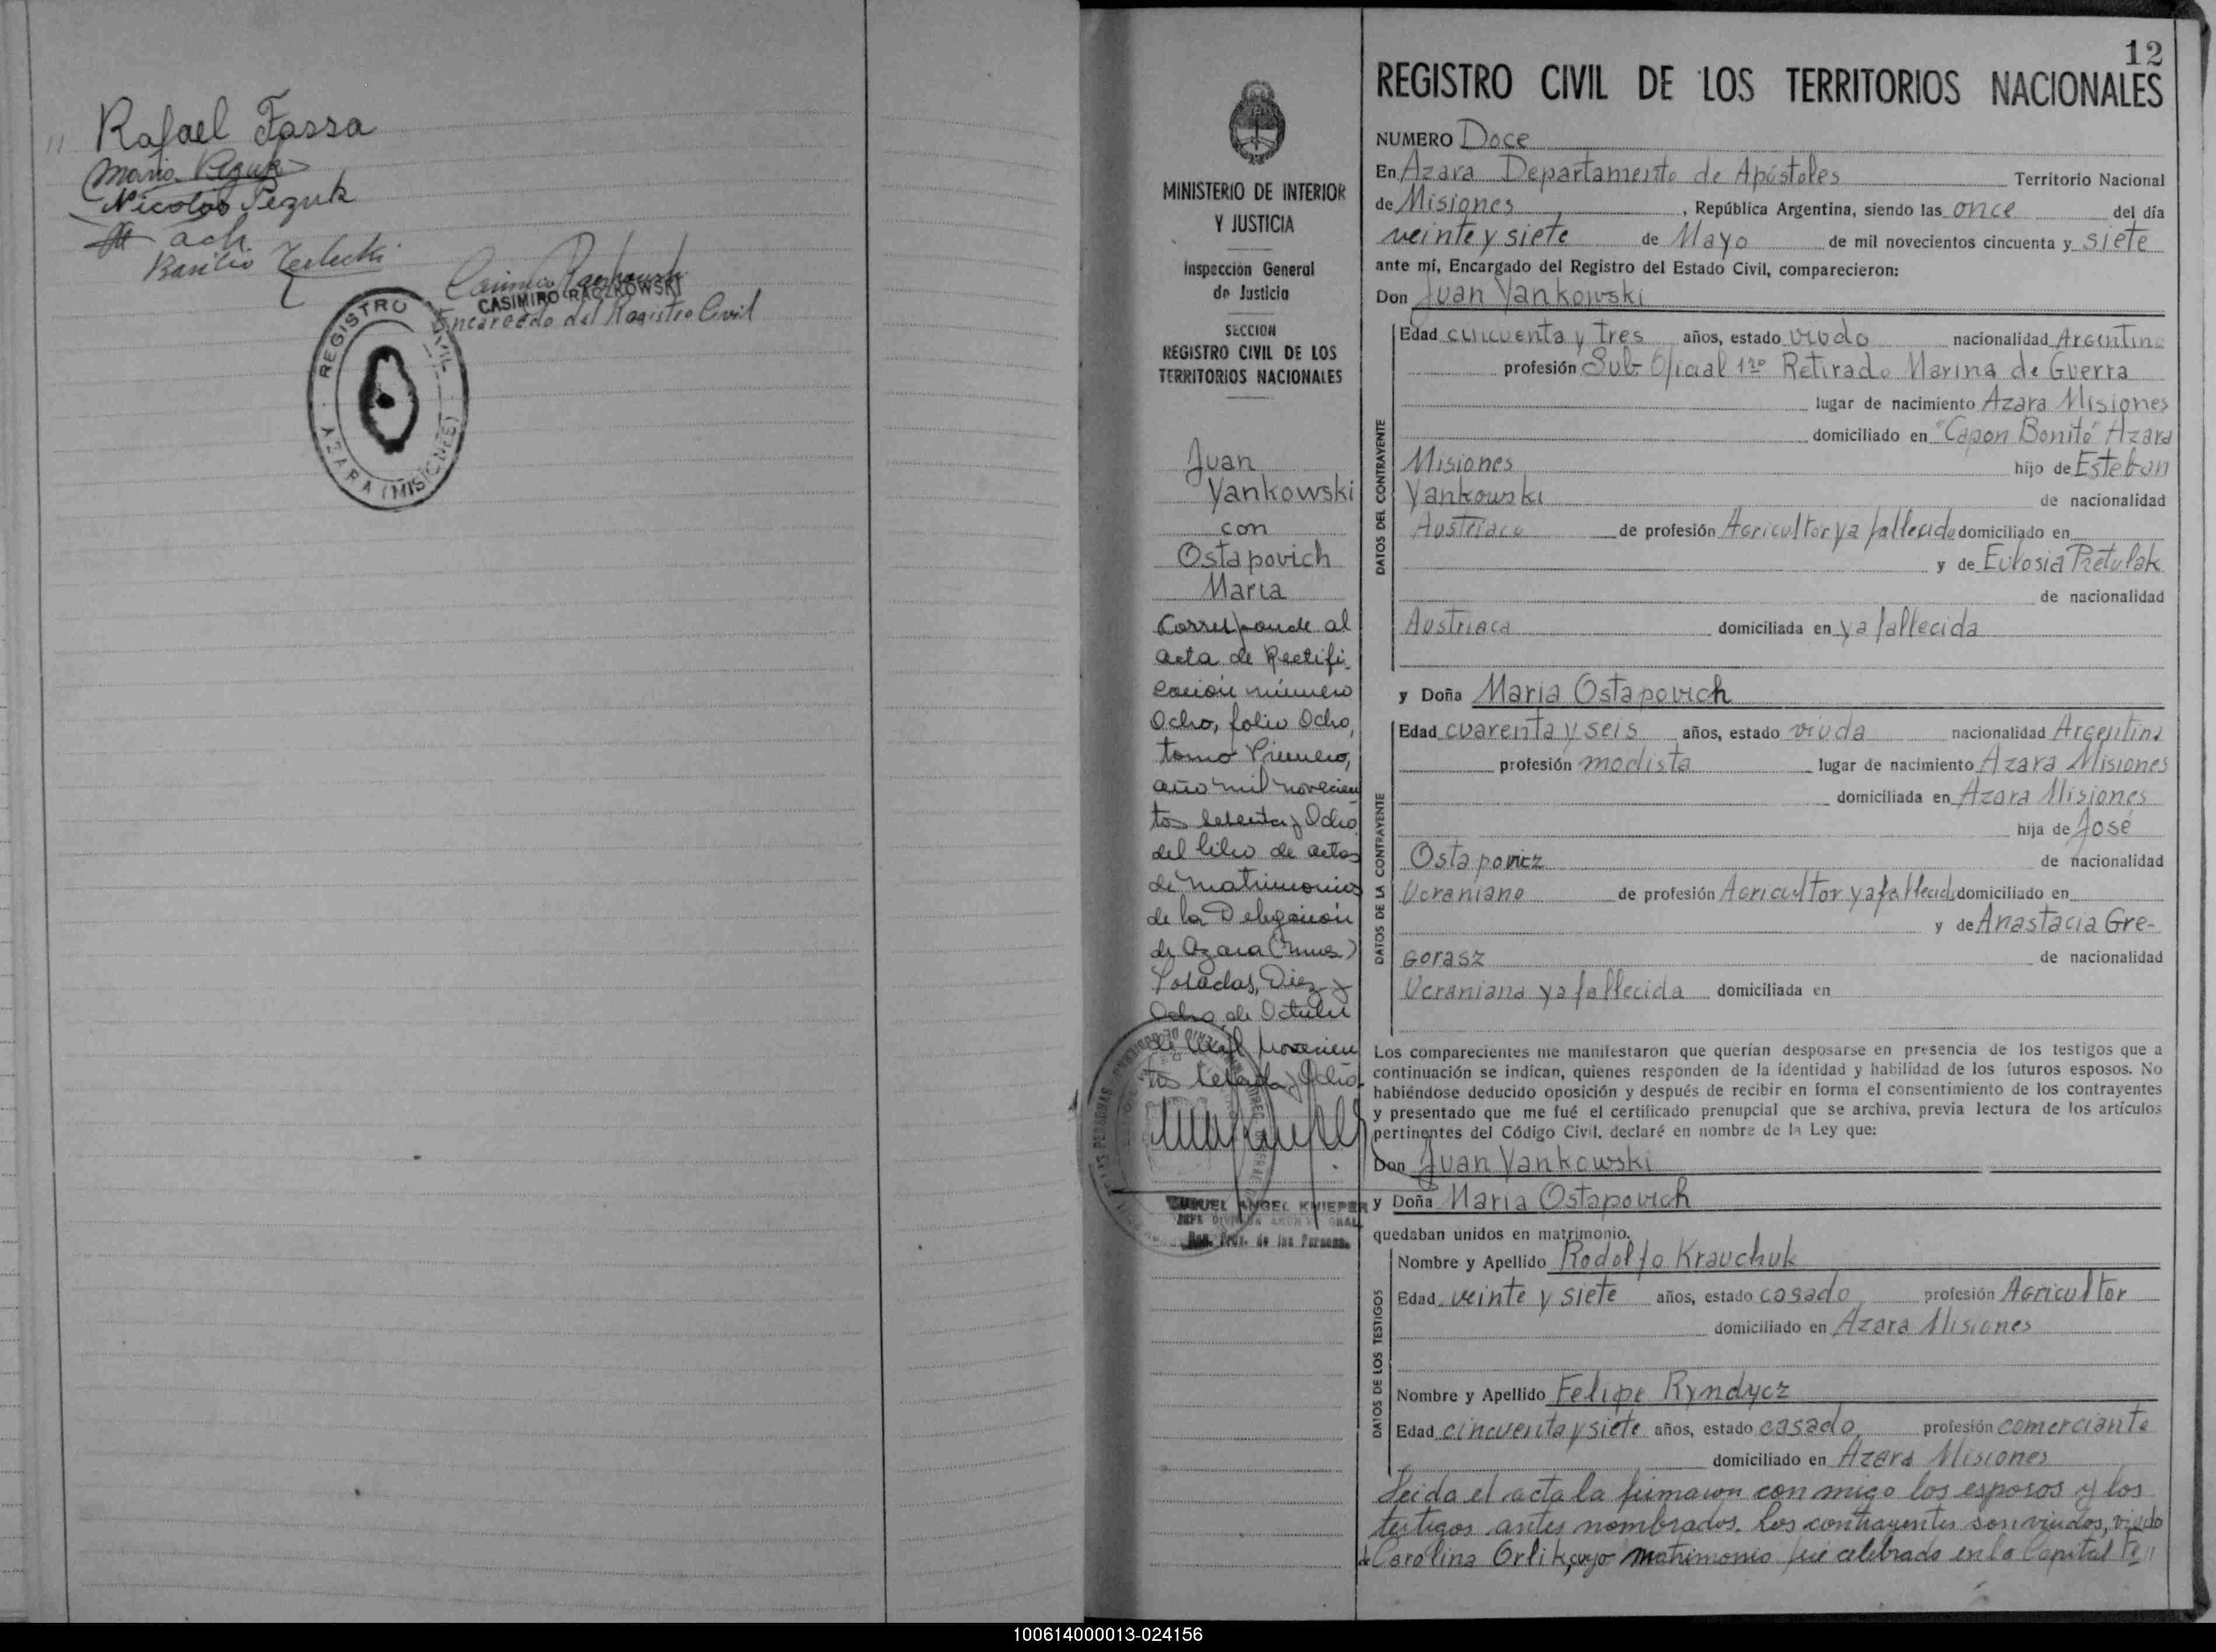 Rafael Fassa
Maria Pezuk
Nicolas Pezuk
ach.
Basilio
CASIMIRO RACZKOWSKI
Encargado del Registro Civil
REGISTRO CIVIL
AZARA (MISIONES)
12
REGISTRO CIVIL DE LOS TERRITORIOS NACIONALES
MINISTERIO DE INTERIOR
Y JUSTICIA
Inspección General
de Justicia
SECCION
REGISTRO CIVIL DE LOS
TERRITORIOS NACIONALES
Juan
Yankowski
con
Ostapovich
Maria
Corresponde al
acta de Rectifi-
cación número
Ocho, folio Ocho,
tomo Primero,
año mil novecien
tos setenta y Ocho
del libro de actas
de matrimonios
de la Delegación
de Azara (Mnes)
Posadas, Diez y
Ocho de Octubre
de mil novecien
tos setenta y Ocho.
MIGUEL ANGEL KNIEPER
Reg. Prov. de las Personas
NUMERO Doce
En Azara Departamento de Apóstoles Territorio Nacional
de Misiones, República Argentina, siendo las once del día
veinte y siete de Mayo de mil novecientos cincuenta y siete
ante mí, Encargado del Registro del Estado Civil, comparecieron:
Don Juan Yankowski
DATOS DEL CONTRAYENTE
Edad cincuenta y tres años, estado viudo nacionalidad Argentina
profesión Sub-Oficial 1ro Retirado Marina de Guerra
lugar de nacimiento Azara Misiones
domiciliado en "Capon Bonito" Azara
Misiones hijo de Esteban
Yankowski de nacionalidad
Austriaco de profesión Agricultor ya fallecido domiciliado en
y de Eufosia Pretulak
de nacionalidad
Austriaca domiciliada en ya fallecida
y Doña Maria Ostapovich
DATOS DE LA CONTRAYENTE
Edad cuarenta y seis años, estado viuda nacionalidad Argentina
profesión modista lugar de nacimiento Azara Misiones
domiciliada en Azara Misiones
hija de José
Ostapovicz de nacionalidad
Ucraniano de profesión Agricultor ya fallecido domiciliado en
y de Anastacia Gre-
gorasz de nacionalidad
Ucraniana ya fallecida domiciliada en
Los comparecientes me manifestaron que querían desposarse en presencia de los testigos que a
continuación se indican, quienes responden de la identidad y habilidad de los futuros esposos. No
habiéndose deducido oposición y después de recibir en forma el consentimiento de los contrayentes
y presentado que me fué el certificado prenupcial que se archiva, previa lectura de los artículos
pertinentes del Código Civil, declaré en nombre de la Ley que:
Don Juan Yankowski
y Doña Maria Ostapovich
quedaban unidos en matrimonio.
DATOS DE LOS TESTIGOS
Nombre y Apellido Rodolfo Krauchuk
Edad veinte y siete años, estado casado profesión Agricultor
domiciliado en Azara Misiones
Nombre y Apellido Felipe Ryndycz
Edad cincuenta y siete años, estado casado, profesión comerciante
domiciliado en Azara Misiones
Leida el acta la firmaron con migo los esposos y los
testigos antes nombrados. Los contrayentes son viudos, viudo
de Carolina Orlik, cuyo matrimonio fue celebrado en la Capital Fe
100614000013-024156